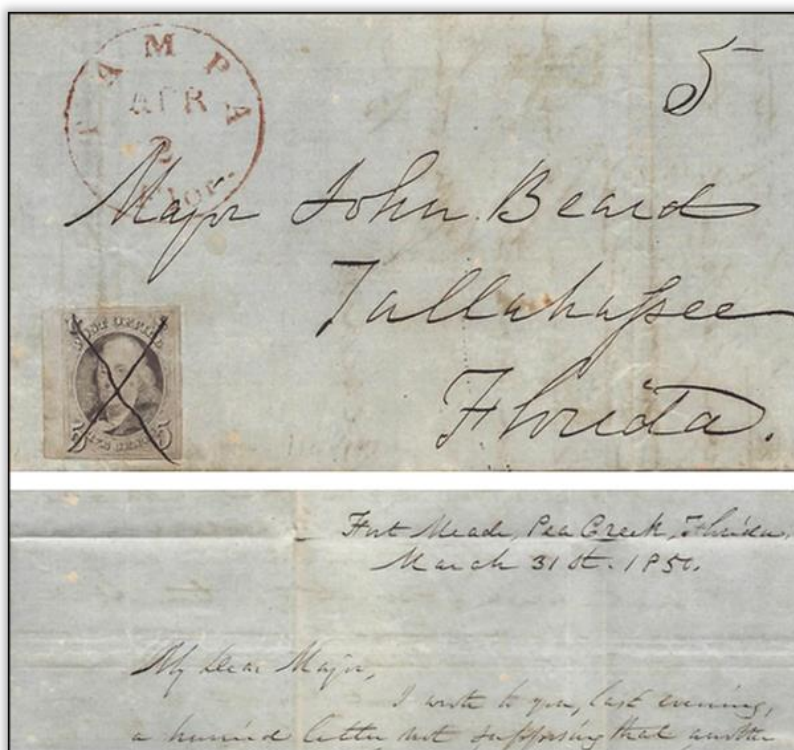 TAMPA
APR
2
Flor.
5
Major John Beard
Tallahassee
Florida.
POST OFFICE
5 FIVE CENTS 5
Fort Meade, Pea Creek, Florida,
March 31st. 1850.
My Dear Major,
I wrote to you, last evening,
a hurried letter not supposing that another